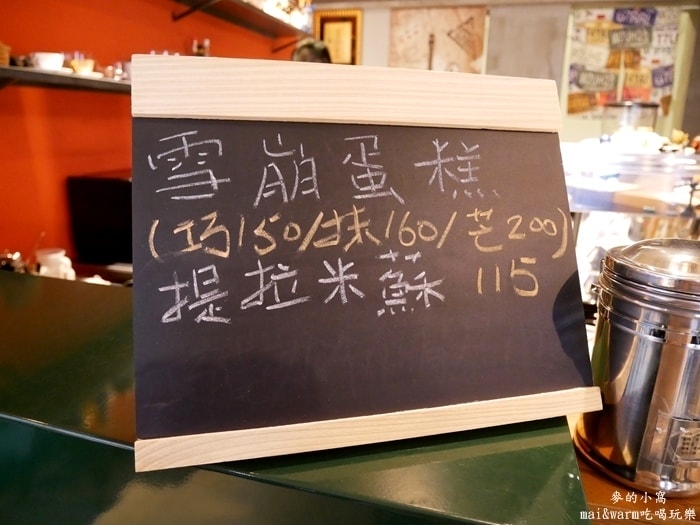 雪崩蛋糕
(巧150/抹160/芒200)
提拉米蘇 115
麥的小窩
mai&warm吃喝玩樂